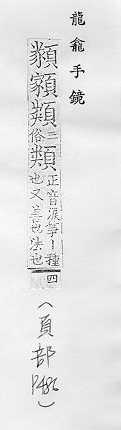 龍龕手鏡
三俗類正音淚等丨種
也又善也法也
四
(頁部
P486)